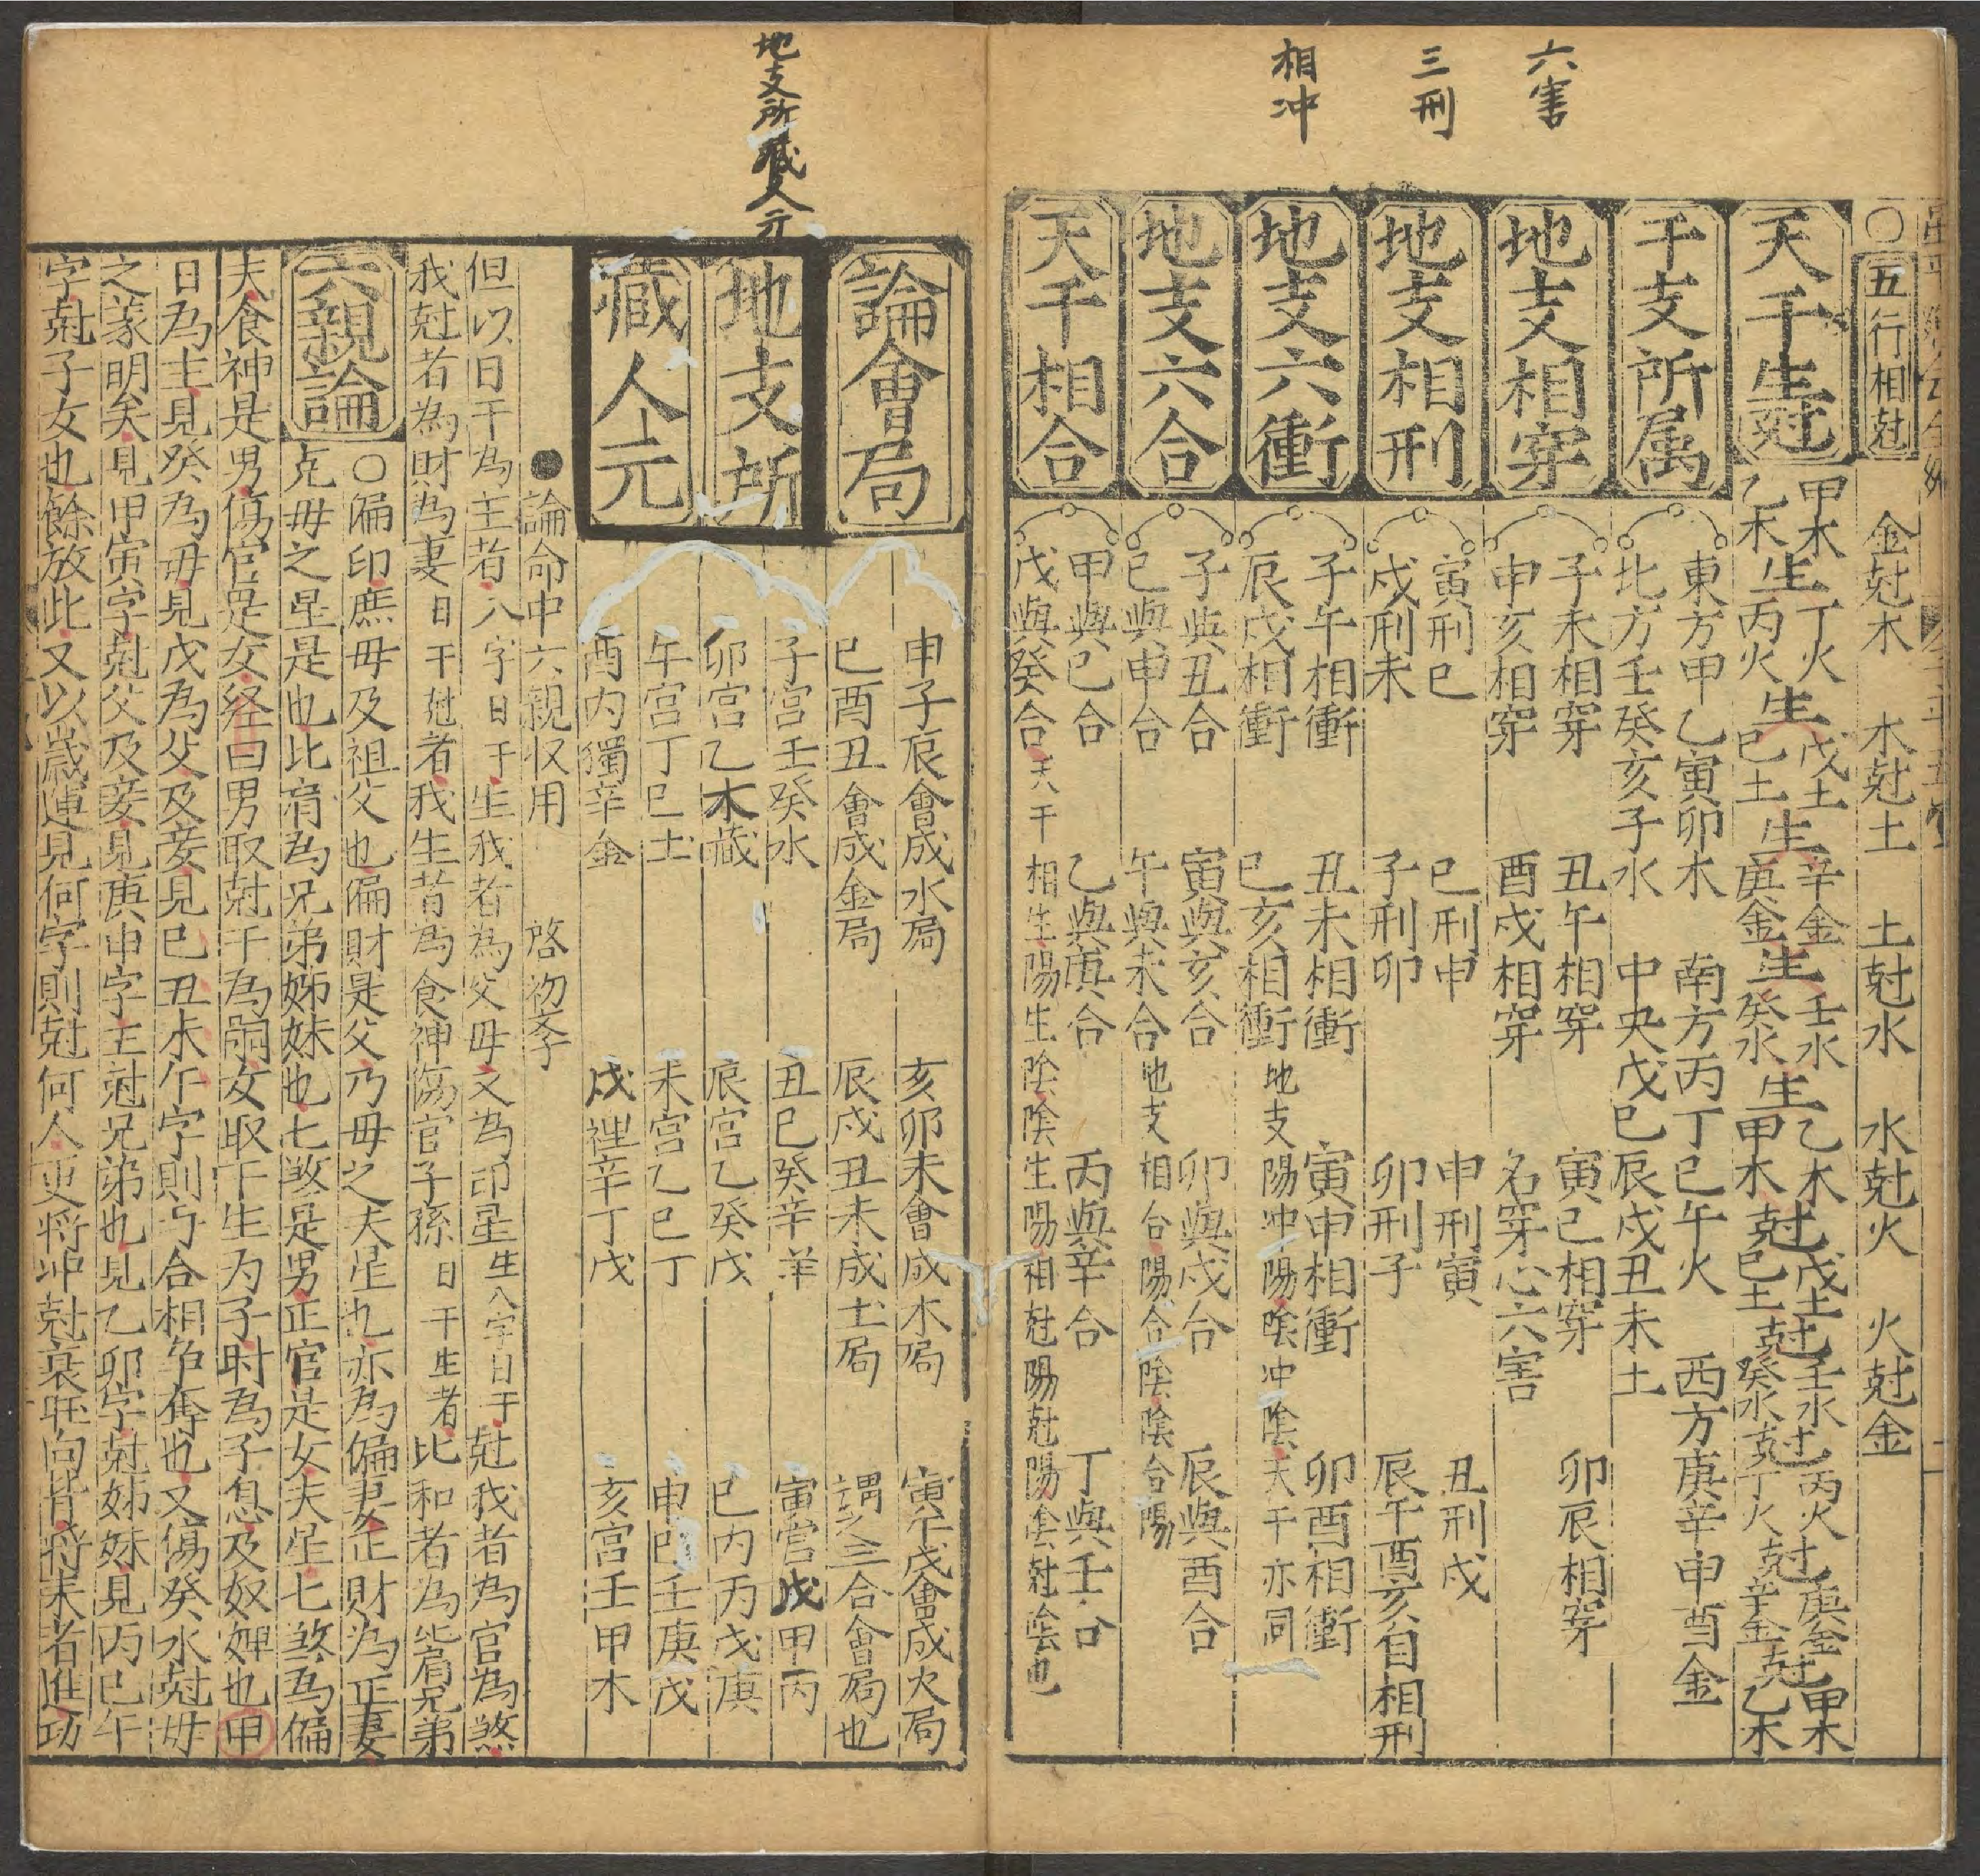 六害
三刑
相冲
○五行相尅 金尅木 木尅土 土尅水 水尅火 火尅金
天干生尅
甲木丁火 戊土 辛金 壬水 乙木 戊土尅壬水尅丙火尅庚金尅甲木
乙木生丙火生巳土生庚金生癸水生甲木尅巳土尅癸水尅丁火尅辛金尅乙木
干支所属
東方甲乙寅卯木 南方丙丁巳午火 西方庚辛申酉金
北方壬癸亥子水 中央戊巳辰戌丑未土
地支相穿
子未相穿 丑午相穿 寅巳相穿 卯辰相穿
申亥相穿 酉戌相穿 名穿心六害
地支相刑
寅刑巳 巳刑申 申刑寅 丑刑戌
戌刑未 子刑卯 卯刑子 辰午酉亥自相刑
地支六衝
子午相衝 丑未相衝 寅申相衝 卯酉相衝
辰戌相衝 巳亥相衝 地支陽冲陽陰冲陰天干亦同
地支六合
子與丑合 寅與亥合 卯與戌合 辰與酉合
巳與申合 午與未合 地支相合陽合陰陰合陽
天干相合
甲與巳合 乙與庚合 丙與辛合 丁與壬合
戊與癸合 天干相生陽生陰陰生陽相尅陽尅陽陰尅陰也
地支所藏人元
論會局
申子辰會成水局 亥卯未會成木局 寅午戌會成火局
巳酉丑會成金局 辰戌丑未成土局 謂之三合會局也
地支所
藏人元
子宮壬癸水 丑巳癸辛羊 寅宮戊甲丙
卯宮乙木藏 辰宮乙癸戊 巳内丙戊庚
午宮丁巳土 未宮乙巳丁 申巳壬庚戊
酉内獨辛金 戌裡辛丁戊 亥宮壬甲木
●論命中六親収用 啓初孝子
但以日干為主者八字日干生我者為父母又為印星生八字日干尅我者為官為煞
我尅者為財為妻日干尅者我生者為食神傷官子孫日干生者比和者為比肩兄弟
六親論
○偏印庶母及祖父也偏財是父乃母之夫星也亦為偏妻正財為正妻
克母之星是也比肩為兄弟姊妹也七煞是男正官是女夫星七煞為偏
夫食神是男傷官是女経曰男取尅干為嗣女取干生为子时為子息及奴婢也甲
日為主見癸為母見戊為父及妾見巳丑未午字則与合相争奪也又傷癸水尅母
之義明矣見甲寅字尅父及妾見庚申字主尅兄弟也見乙卯字尅姊妹見丙巳午
字尅子女也餘放此又以歲運見何字則尅何人更将冲尅衰旺向背将来者進功